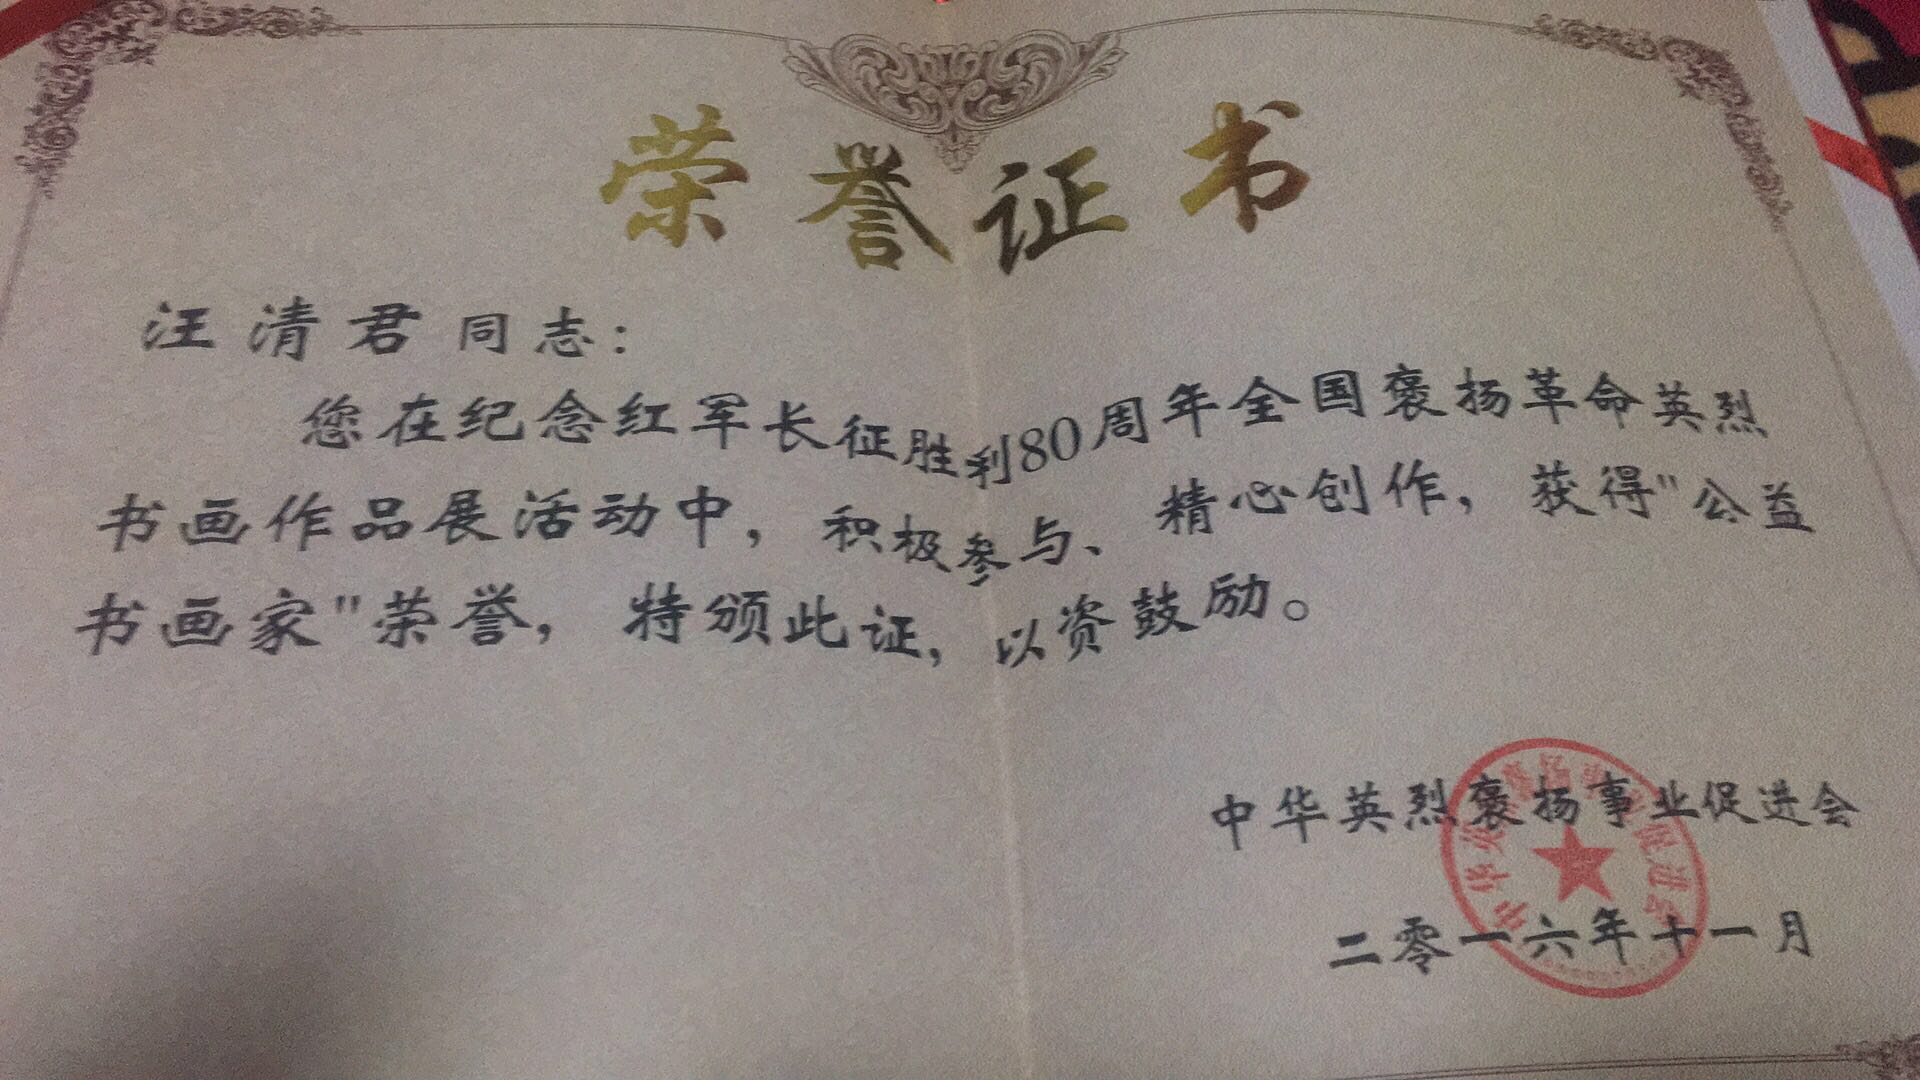 荣誉证书
汪清君同志：
您在纪念红军长征胜利80周年全国褒扬革命英烈
书画作品展活动中，积极参与、精心创作，获得"公益
书画家"荣誉，特颁此证，以资鼓励。
中华英烈褒扬事业促进会
二零一六年十一月
中华英烈褒扬事业促进会